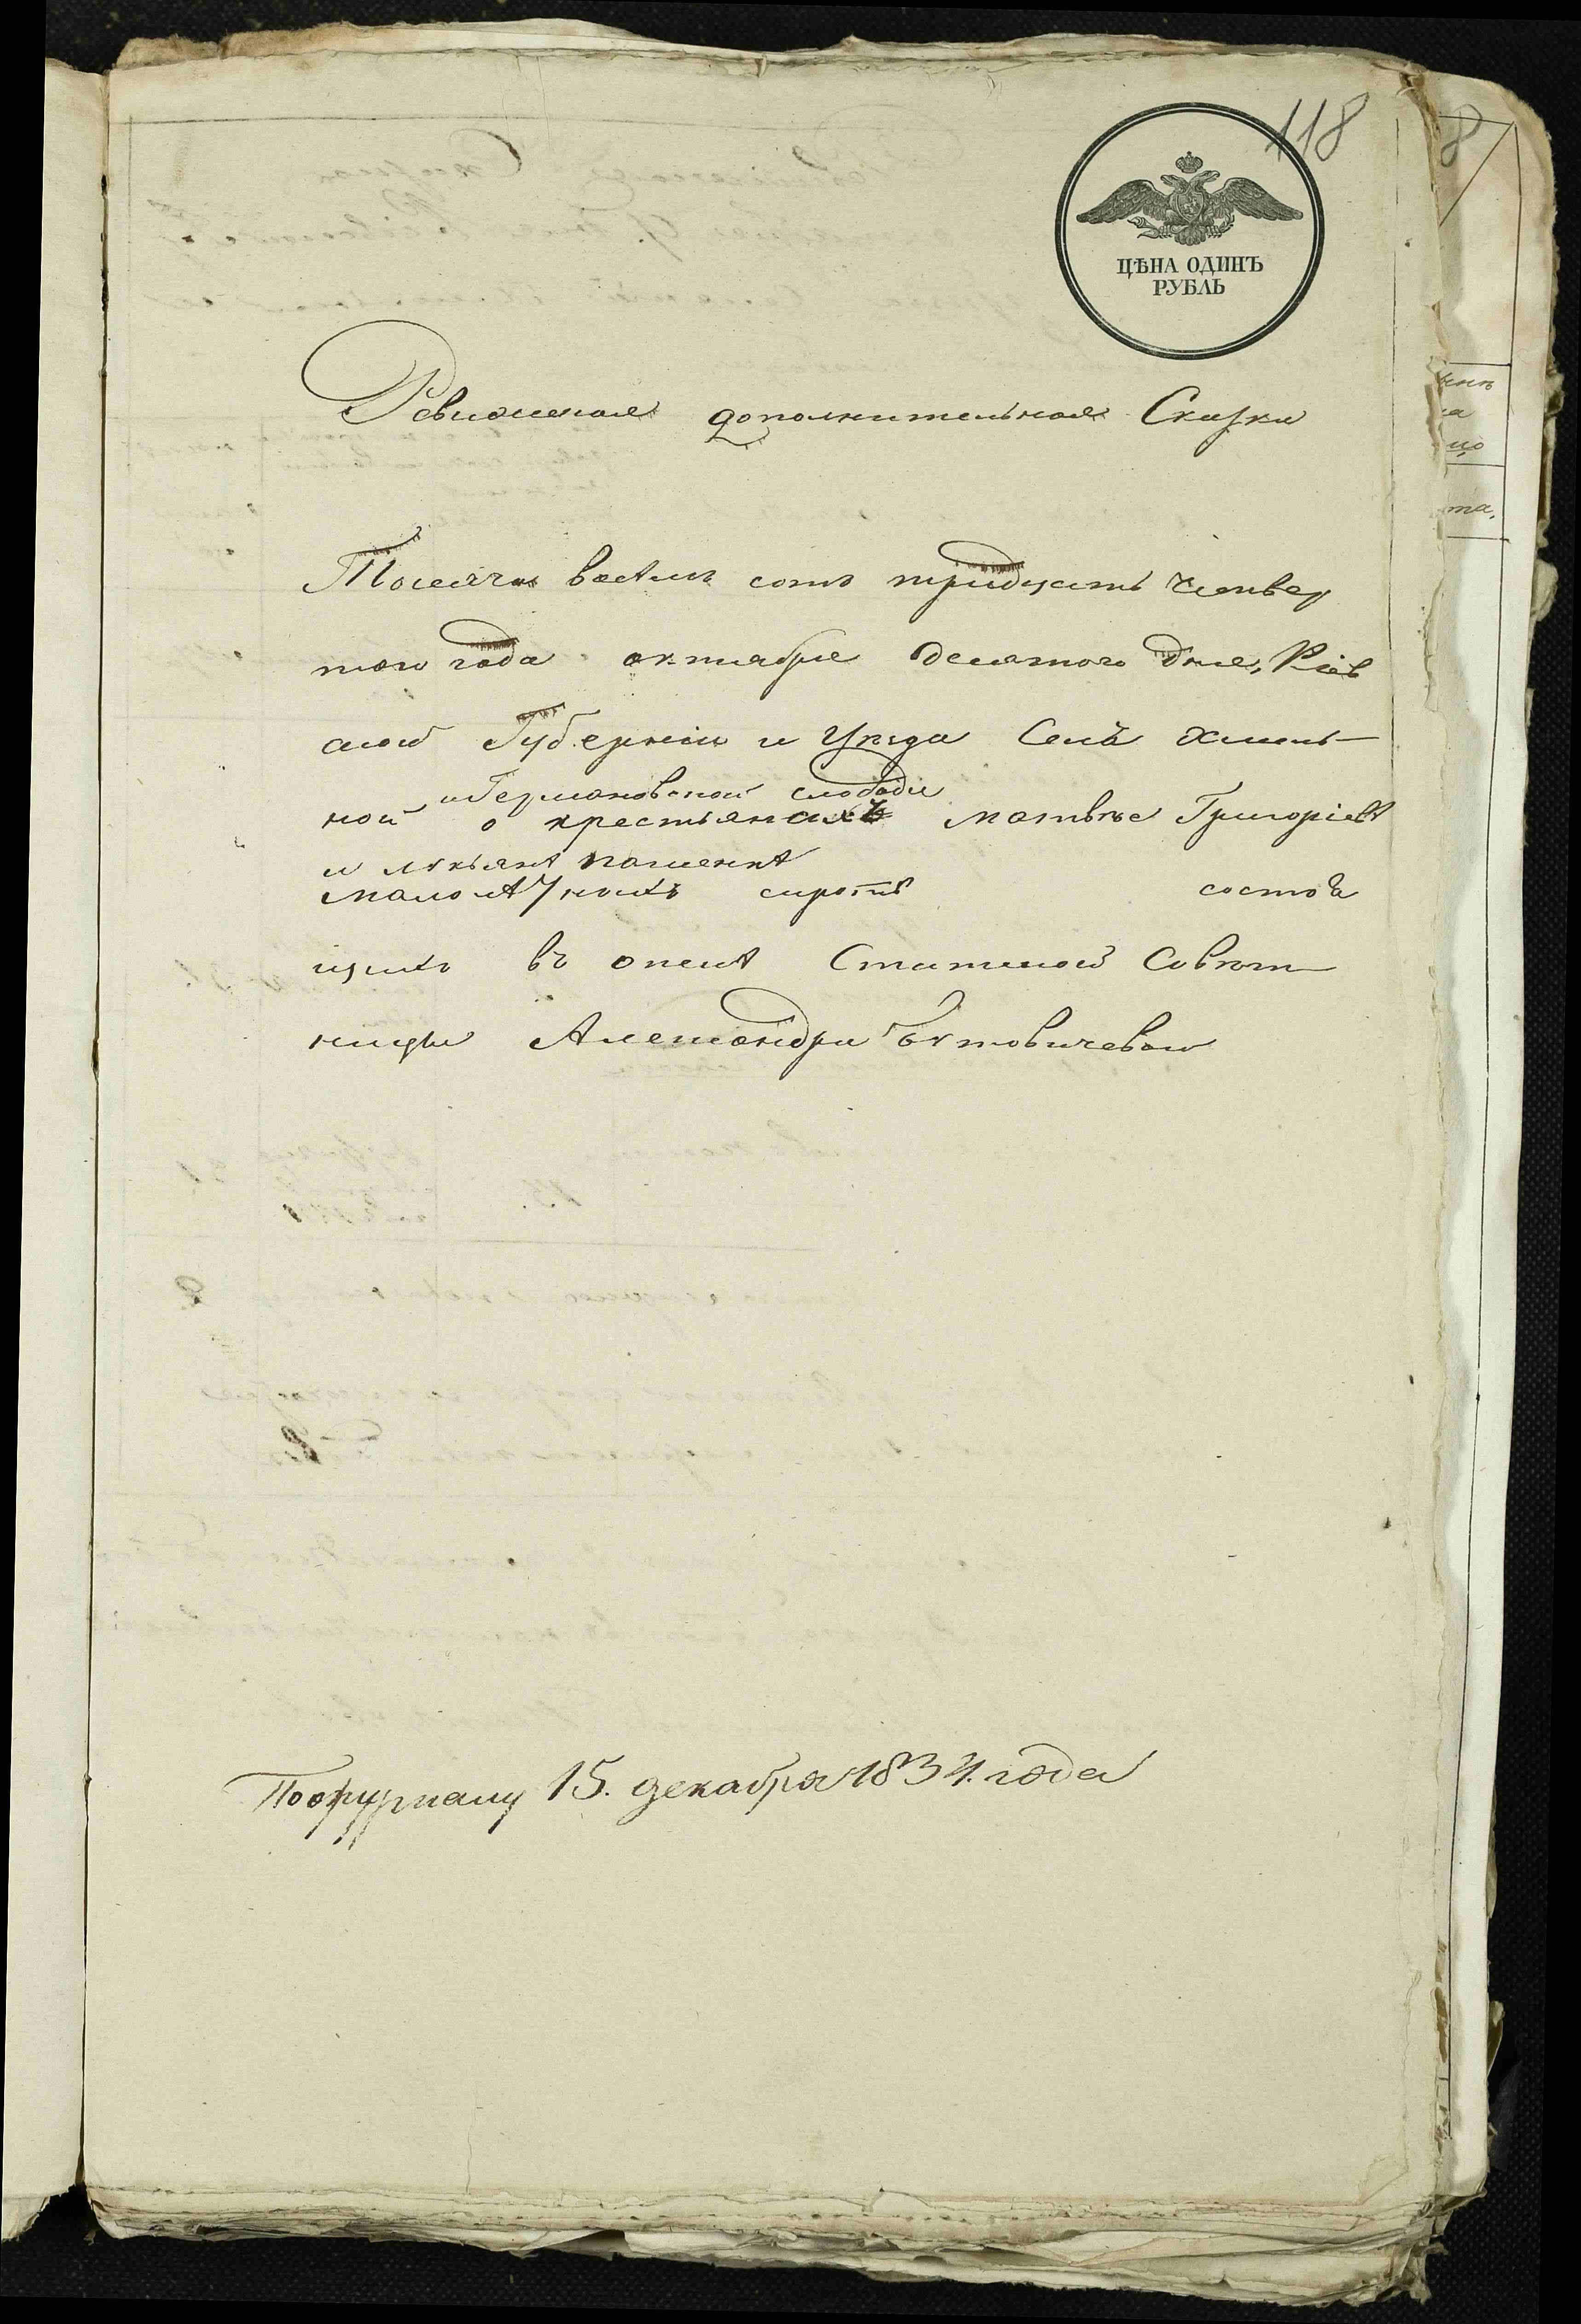 118
ЦѢНА ОДИНЪ
РУБЛЬ
Ревизская дополнительная Сказка
Тысяча восемъ сотъ тридцать четвер
того года октября десятого дня, Кіев
ской Губерніи и Уѣзда Села Хмель
и Германовской слободи
ной о крестьянахъ Матвѣе Григоріевѣ
и Лукьянѣ
малолѣтныхъ сиротѣ состоя
щихъ въ опекѣ Статской Совѣт
ницы Александри Бутовичевой
По журналу 15. декабря 1834. года